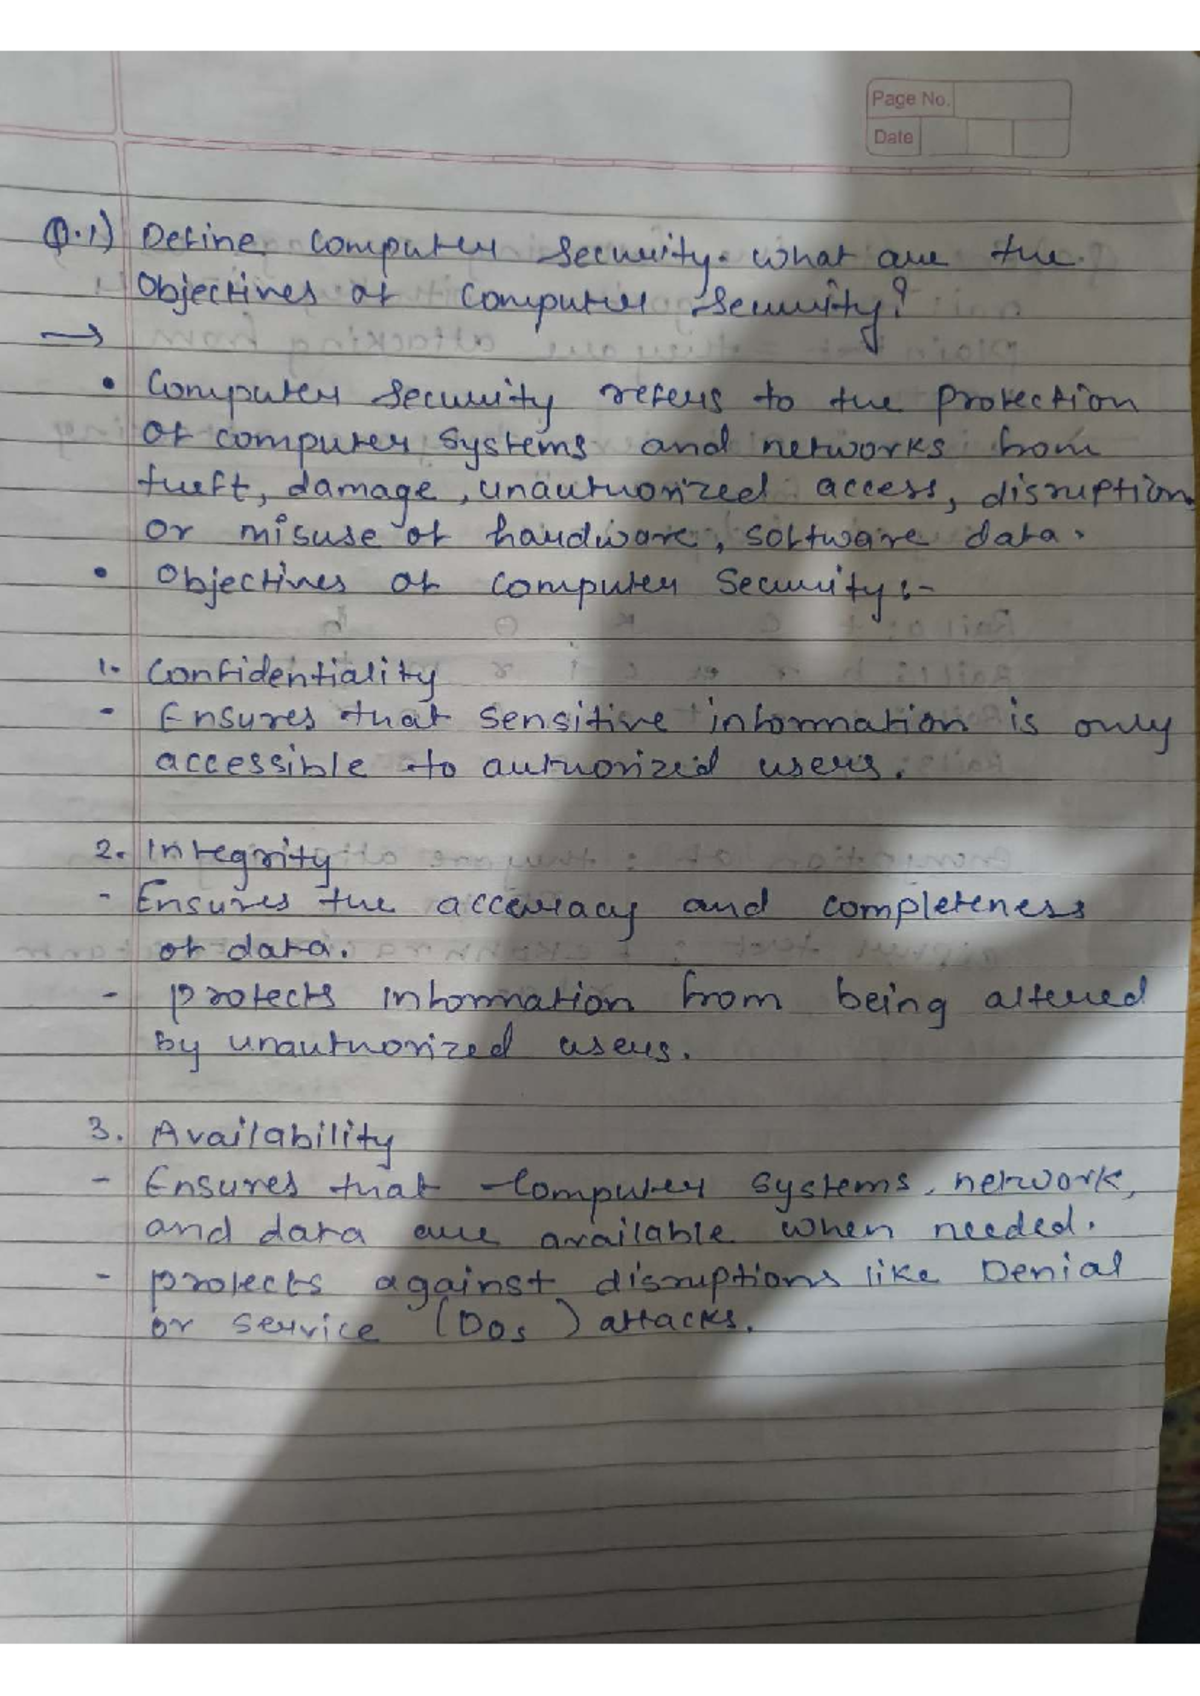 Page No.
Date
Q.1) Define Computer Security. What are the
Objectives of Computer Security?
→
• Computer Security refers to the protection
of computer systems and networks from
theft, damage, unauthorized access, disruption,
or misuse of hardware, software data.
• Objectives of Computer Security :-
1. Confidentiality
- Ensures that sensitive information is only
accessible to authorized users.
2. Integrity
- Ensures the accuracy and completeness
of data.
- protects information from being altered
by unauthorized users.
3. Availability
- Ensures that Computer systems, network,
and data are available when needed.
- protects against disruptions like Denial
or service (Dos) attacks.